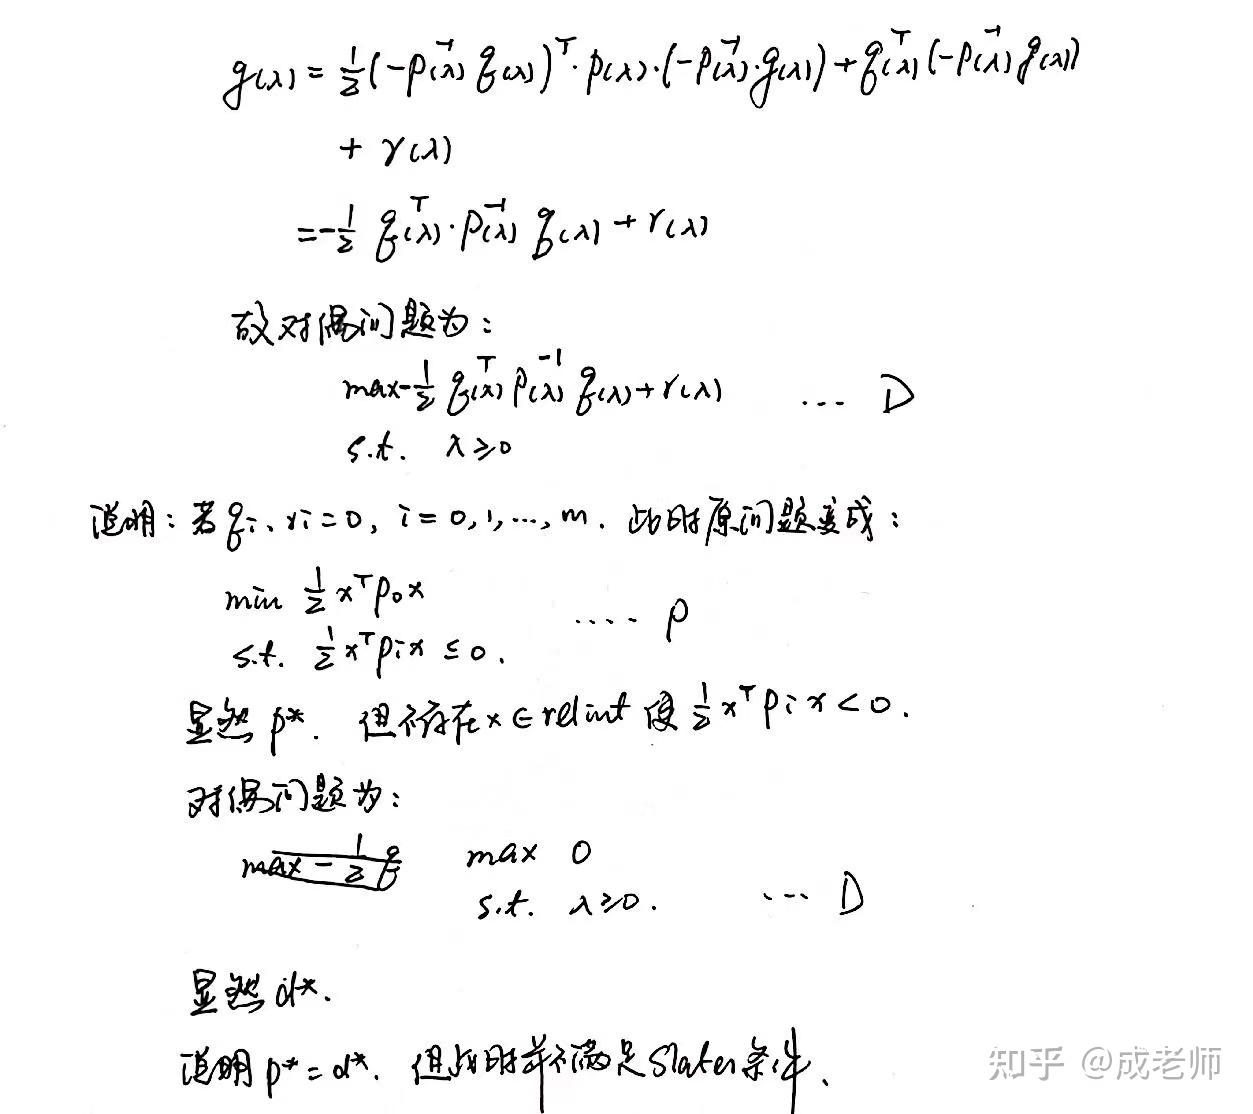 g(λ) = ½(-P(λ)⁻¹ q(λ))ᵀ · P(λ) · (-P(λ)⁻¹ · q(λ)) + q(λ)ᵀ (-P(λ)⁻¹ q(λ))
+ r(λ)
= -½ q(λ)ᵀ · P(λ)⁻¹ q(λ) + r(λ)
故对偶问题为：
max -½ q(λ)ᵀ P(λ)⁻¹ q(λ) + r(λ) … D
s.t. λ≥0
说明：若 qi、ri = 0, i = 0, 1, …, m. 此时原问题变成：
min ½ xᵀP₀x
s.t. ½ xᵀPix ≤ 0. …. P
显然 p*. 但不存在 x ∈ relint 使 ½ xᵀ Pi x < 0.
对偶问题为：
max 0
s.t. λ≥0. … D
显然 d*.
说明 p* = d*. 但此时并不满足 Slater 条件.
知乎 @成老师